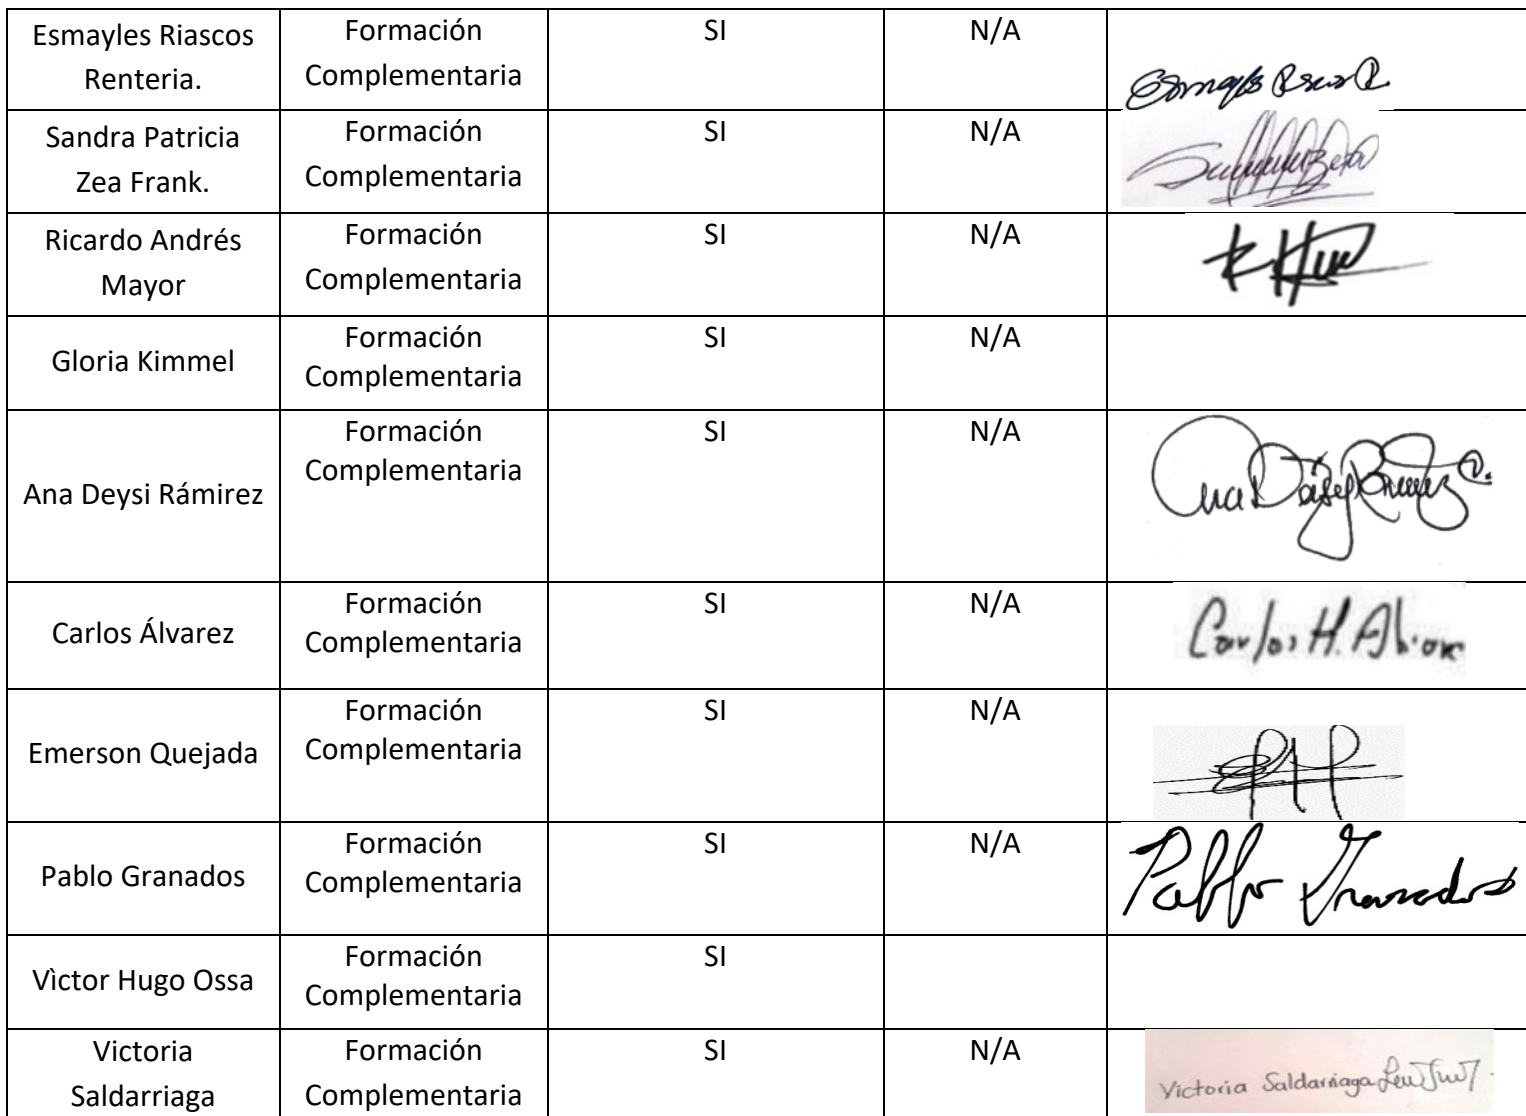 Esmayles Riascos
Renteria.
Formación
Complementaria
SI
N/A
Sandra Patricia
Zea Frank.
Formación
Complementaria
SI
N/A
Ricardo Andrés
Mayor
Formación
Complementaria
SI
N/A
Gloria Kimmel
Formación
Complementaria
SI
N/A
Ana Deysi Rámirez
Formación
Complementaria
SI
N/A
Carlos Álvarez
Formación
Complementaria
SI
N/A
Carlos H.
Emerson Quejada
Formación
Complementaria
SI
N/A
Pablo Granados
Formación
Complementaria
SI
N/A
Pablo Granados
Vìctor Hugo Ossa
Formación
Complementaria
SI
Victoria
Saldarriaga
Formación
Complementaria
SI
N/A
Victoria Saldarriaga